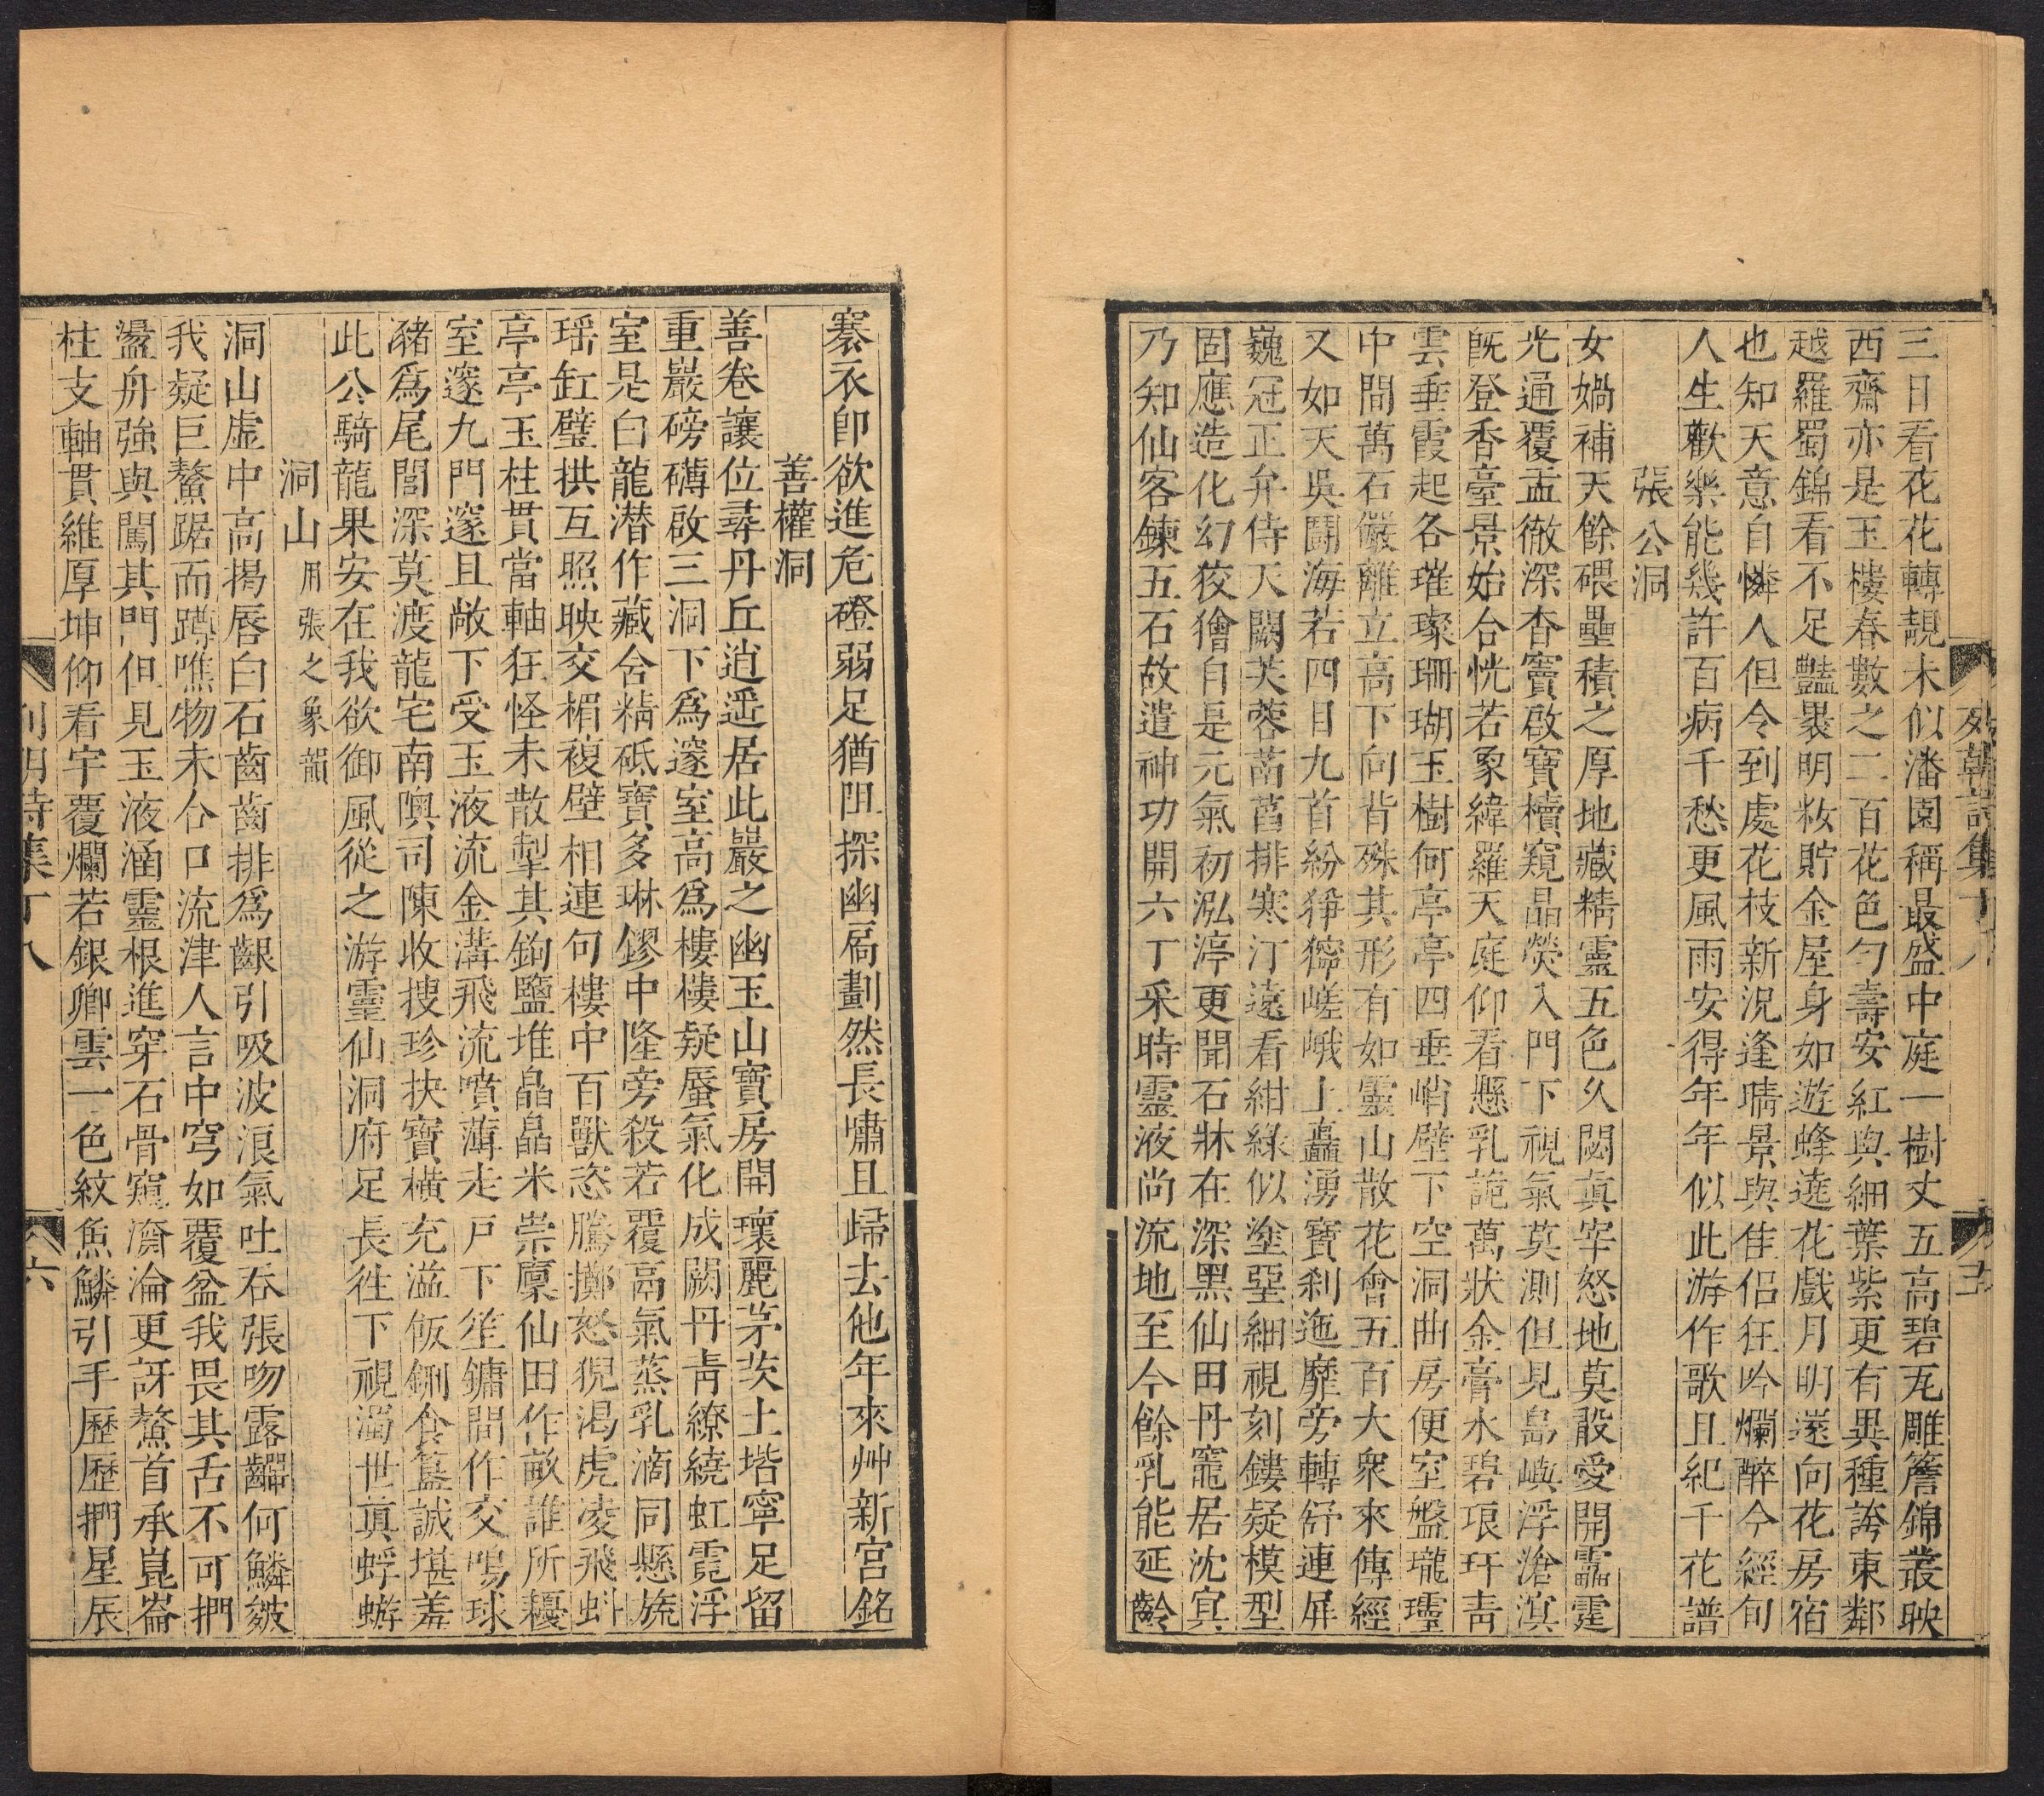 三日看花花轉靚未似潘園稱最盛中庭一樹丈五高碧瓦雕簷錦叢映
西齋亦是玉樓春數之二百花色勻壽安紅與細葉紫更有異種誇東鄰
越羅蜀錦看不足豔裹明妝貯金屋身如遊蜂遶花戲月明遂向花房宿
也知天意自憐人但令到處花枝新況逢晴景與佳侶狂吟爛醉今經旬
人生歡樂能幾許百病千愁更風雨安得年年似此游作歌且紀千花譜
張公洞
女媧補天餘碨壘積之厚地藏精靈五色久閟真宰怒地莫敢愛開靁霆
光通覆盂徹深杳竇啟寶櫝窺晶熒入門下視氣莫測但見島嶼浮滄溟
旣登香臺景始合恍若象緯羅天庭仰看懸乳詭萬狀金膏水碧琅玕靑
雲垂霞起各璀璨珊瑚玉樹何亭亭四垂峭壁下空洞曲房便空盤瓏瓗
中間萬石儼離立高下向背殊其形有如靈山散花會五百大衆來傳經
又如天吳鬪海若四目九首紛猙獰嵯峨上矗湧寶刹迤靡旁轉舒連屏
巍冠正弁侍天闕芙蓉菡萏排寒汀遠看紺綠似塗堊細視刻鏤疑模型
固應造化幻狡獪自是元氣初泓渟更聞石牀在深黑仙田丹竈居沈冥
乃知仙客鍊五石故遣神功開六丁采時靈液尚流地至今餘乳能延齡
列朝詩集丁八
五
褰衣卽欲進危磴弱足猶阻探幽扃劃然長嘯且歸去他年來艸新宮銘
善權洞
善卷讓位尋丹丘逍遥居此巖之幽玉山寶房開瓌麗茅茨土堦寧足留
重巖磅礴啟三洞下爲邃室高爲樓樓疑蜃氣化成闕丹靑繚繞虹霓浮
室是白龍潛作藏舍精砥寶多琳鏐中隆旁殺若覆鬲氣蒸乳滴同懸旒
瑶缸璧拱互照映交楣複壁相連句樓中百獸恣騰擲怒猊渴虎凌飛蚪
亭亭玉柱貫當軸狂怪未散掣其鉤鹽堆皛皛米崇廩仙田作畝誰所耰
室邃九門邃且敞下受玉液流金溝飛流噴薄走戸下笙鏞間作交鳴球
豬爲尾閭深莫渡龍宅南隩司陳收搜珍抉寶橫充溢飯鉶食簋誠堪羞
此公騎龍果安在我欲御風從之游靈仙洞府足長往下視濁世眞蜉蝣
洞山用張之象韻
洞山虛中高揭唇白石齒齒排爲齦引吸波浪氣吐吞張吻露齶何鱗皴
我疑巨鰲踞而蹲噍物未仚口流津人言中穹如覆盆我畏其舌不可捫
盪舟強與闖其門但見玉液涵靈根進穿石骨窺㶊淪更訝鰲首承崑崙
柱支軸貫維厚坤仰看宇覆爛若銀卿雲一色紋魚鱗引手歷歷捫星辰
列朝詩集丁八
六